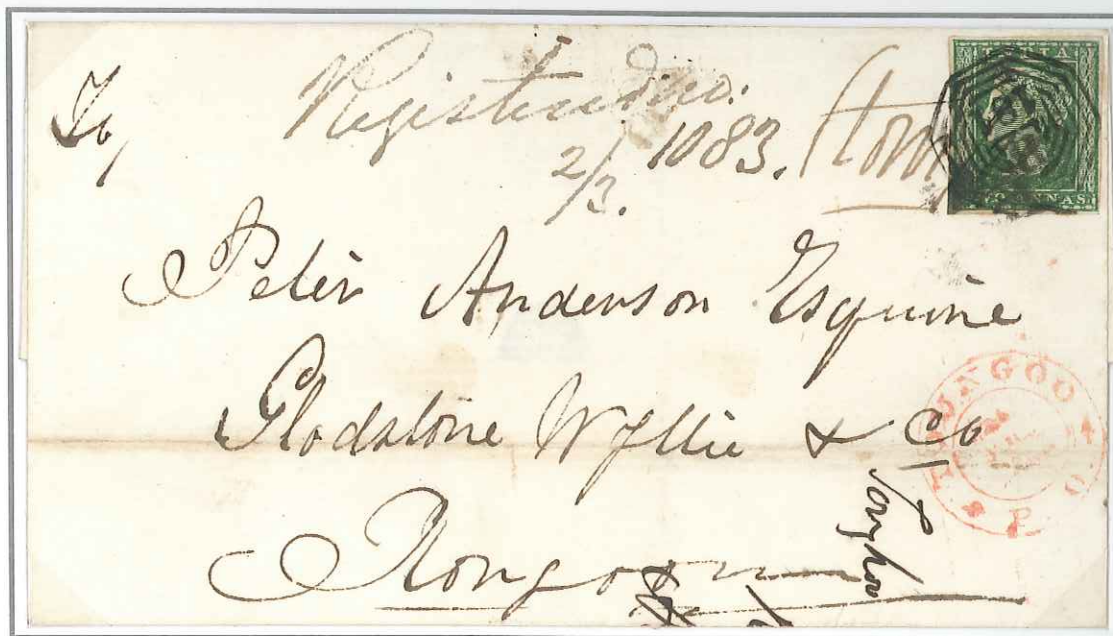 To,
Registered no.
2/3. 1083.
INDIA
TWO ANNAS
Peter Anderson Esquire
Gladstone Wyllie & Co
TOUNGOO P. O
Rangoon